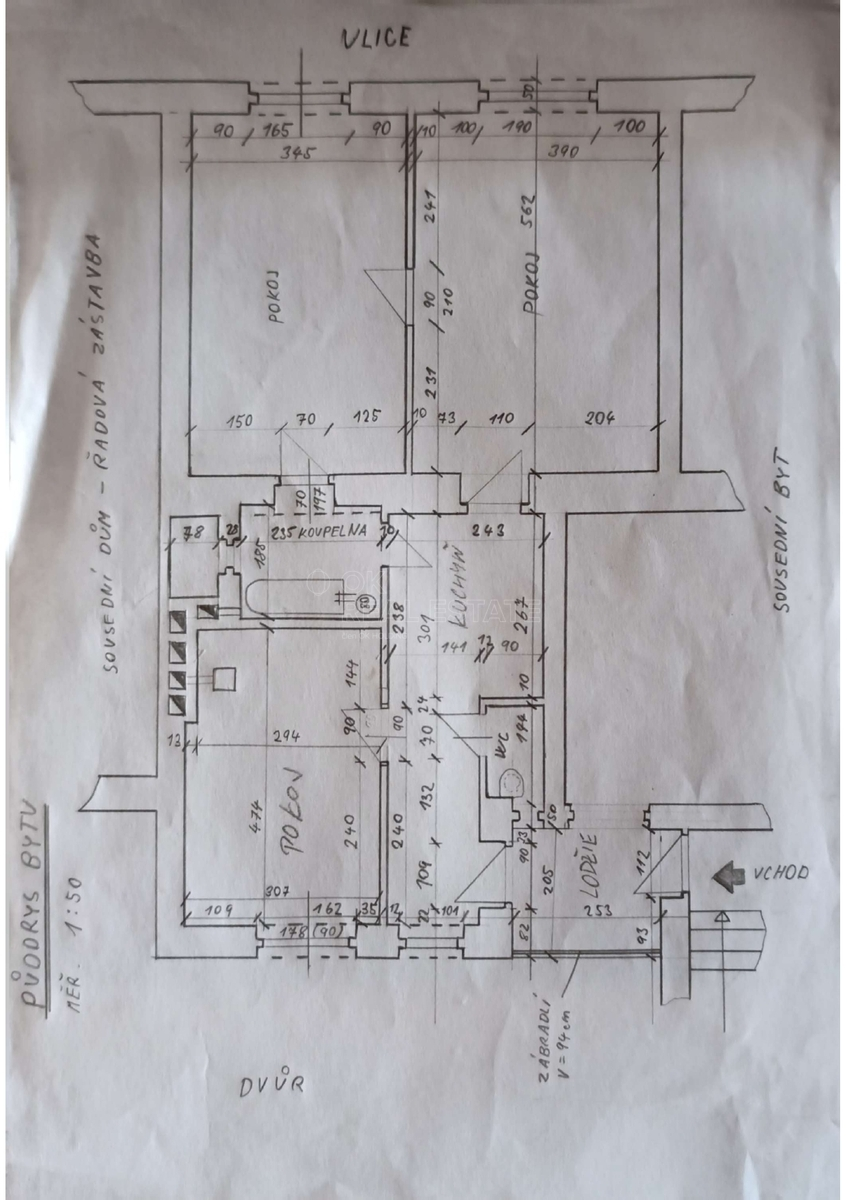 VLICE
50
90 165 90 10 100 190 100
345 390
241
562
SOUSEDNÍ DŮM – ŘADOVÁ ZÁSTAVBA
POKOJ
POKOJ
90
210
231
150 70 125 10 73 110 204
70
197
SOUSEDNÍ BYT
78 28 235 KOUPELNA 10 243
185
KUCHYŇ
238
301
267
141 12 90
144
24
10
90
90
70
WC
144
13 294
474
POKOJ
240
240
132
150
23
90
109
205
LODŽIE
112
VCHOD
307
109 162 35 12 22 101
253
178 (90)
82
93
PŮDORYS BYTU
MĚŘ. 1:50
ZÁBRADLÍ
V = 94cm
DVŮR